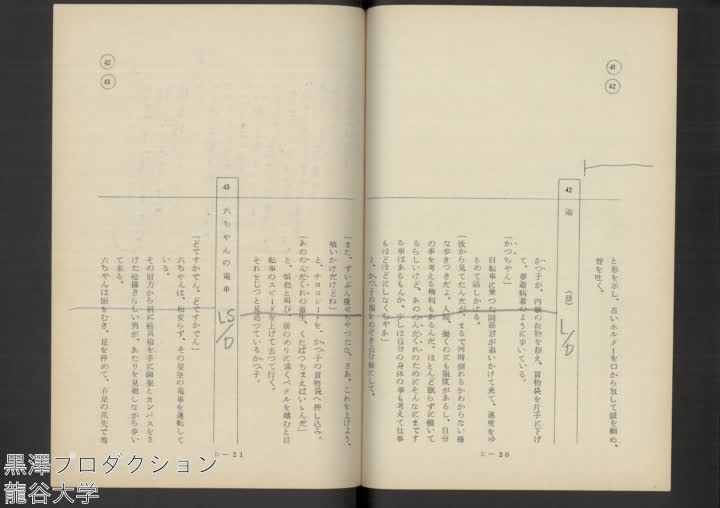 41
42
と形を示し、青いホルダーを口から放して眼を細め、
煙を吐く。
42 道 (昼)
L/D
かつ子が、内職の荷物を抱え、買物袋を片手に下げ
て、夢遊病者のように歩いている。
「かつちゃん」
自転車に乗つた岡部君が追いかけて来て、速度をゆ
るめて話しかける。
「後から見てたんだが、まるで何時倒れるかわからない様
な歩きつきだよ。人間、働くのにも限度があるし、自分
の事を考える権利もあるんだ。ほとんど眠らずに働いて
るらしいけど、あののんだくれのためにそんなにまです
る事はあるもんか。少しは自分の身体の事も考えて仕事
もほどほどにしなくちゃあ」
と、かつ子の顔をのぞき込む様にして、
D-20
42
43
「また、ずいぶん瘦せちやつたな、さあ、これを上げよう、
喰いかけだけどね」
と、チヨコレートを、かつ子の買物袋へ押し込み、
「あののんだくれの畜生、くたばつちまえばいゝんだ」
と、憤然と叫び、前のめりに強くペタルを踏むと自
転車のスピードを上げて去つて行く。
それをじつと見送つているかつ子。
43 六ちやんの電車
LS/D
「どですかでん、どですかでん」
六ちやんは、相変らず、その架架の電車を運転して
いる。
その前方から肩に絵具箱を手に画架とカンバスをさ
げた絵描きらしい男が、あたりを見廻しながら歩い
て来る。
六ちやんは眼をむき、足を停めて、右足の爪先で地
D-21
黒澤プロダクション
龍谷大学